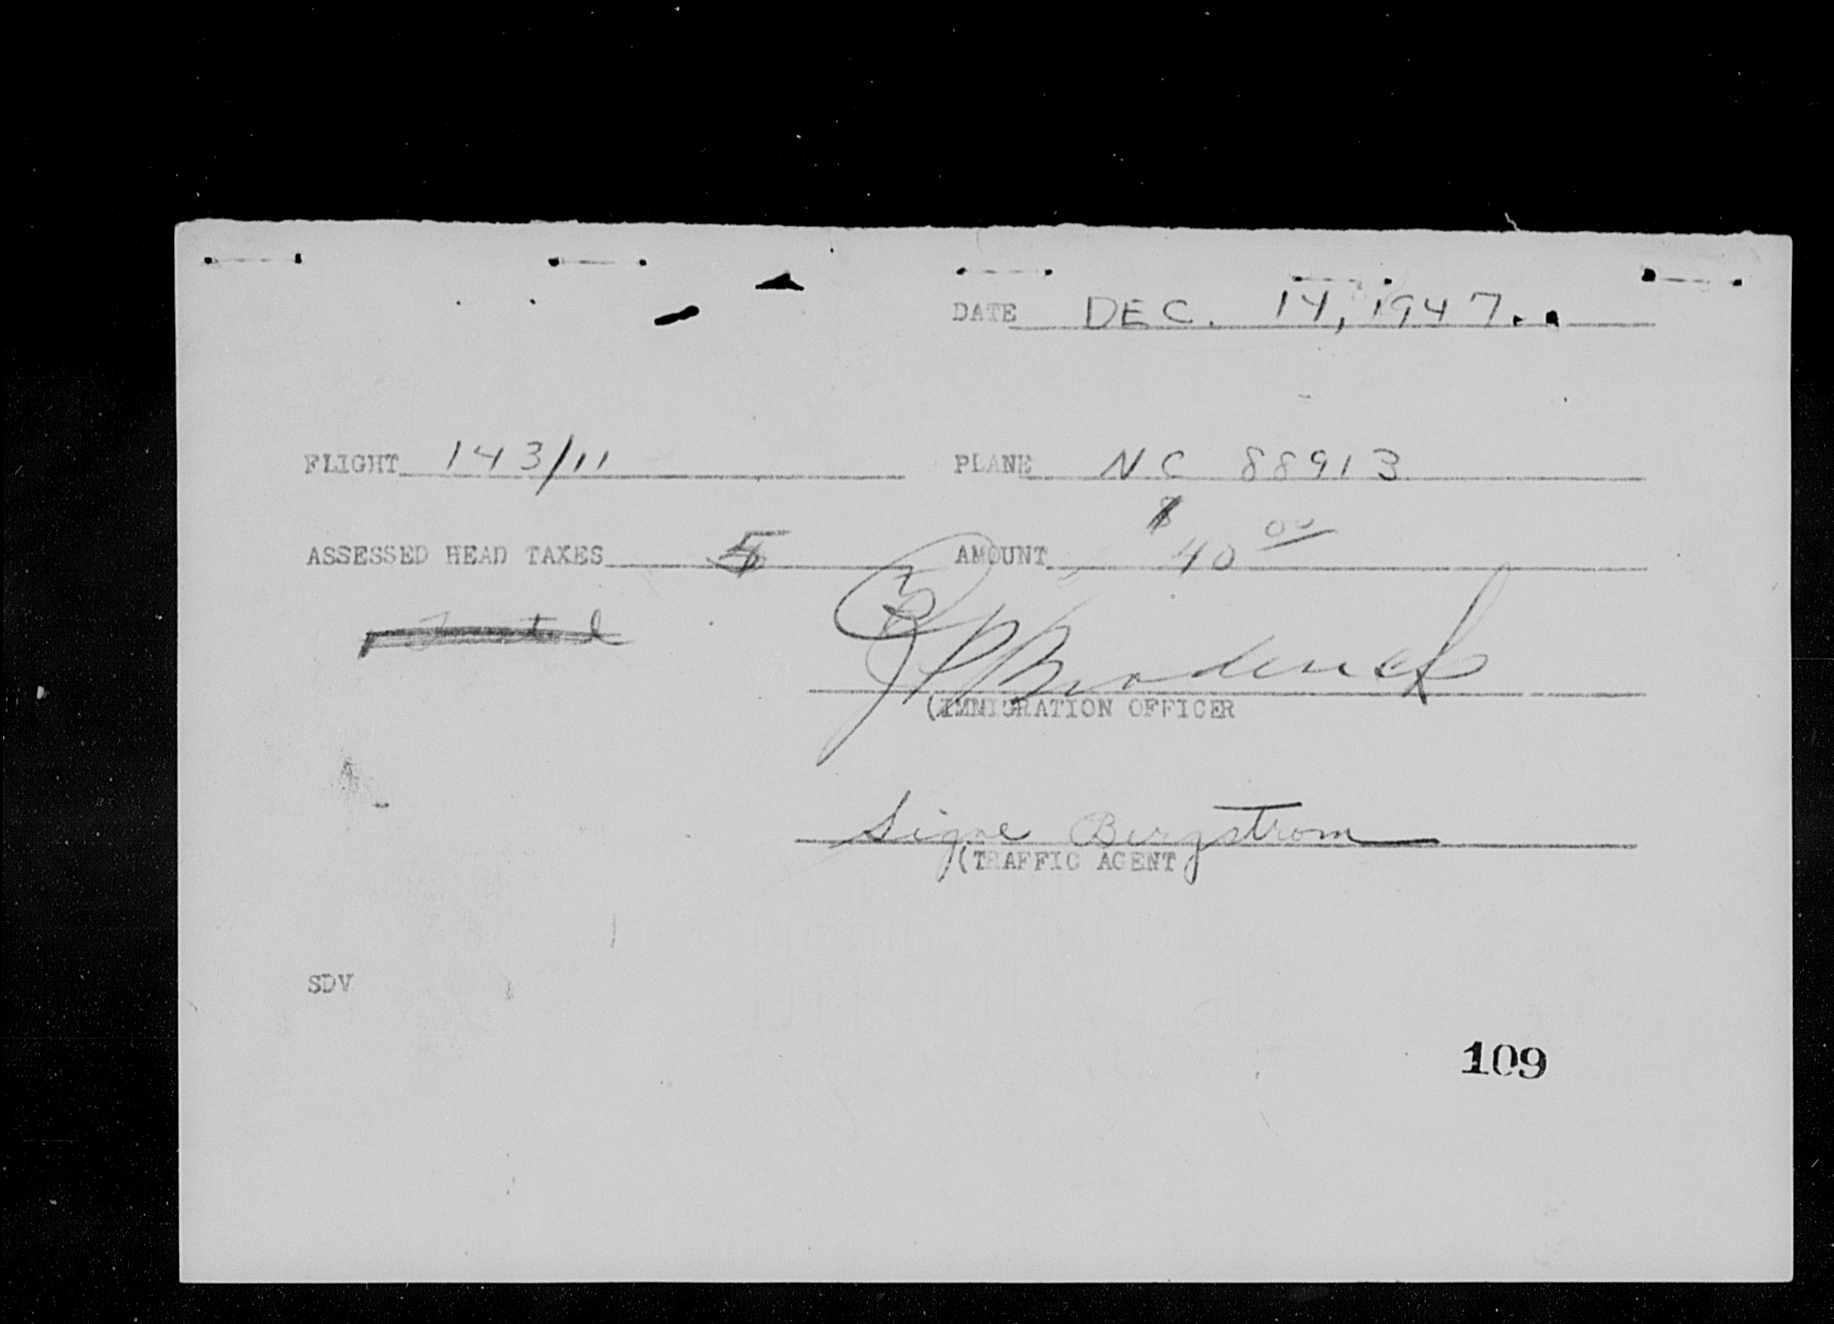 DATE DEC. 14, 1947.
FLIGHT 143/11 PLANE NC 88913
ASSESSED HEAD TAXES 5 AMOUNT $40 00
Broderick
(IMMIGRATION OFFICER
Signe Bergstrom
(TRAFFIC AGENT
SDV
109